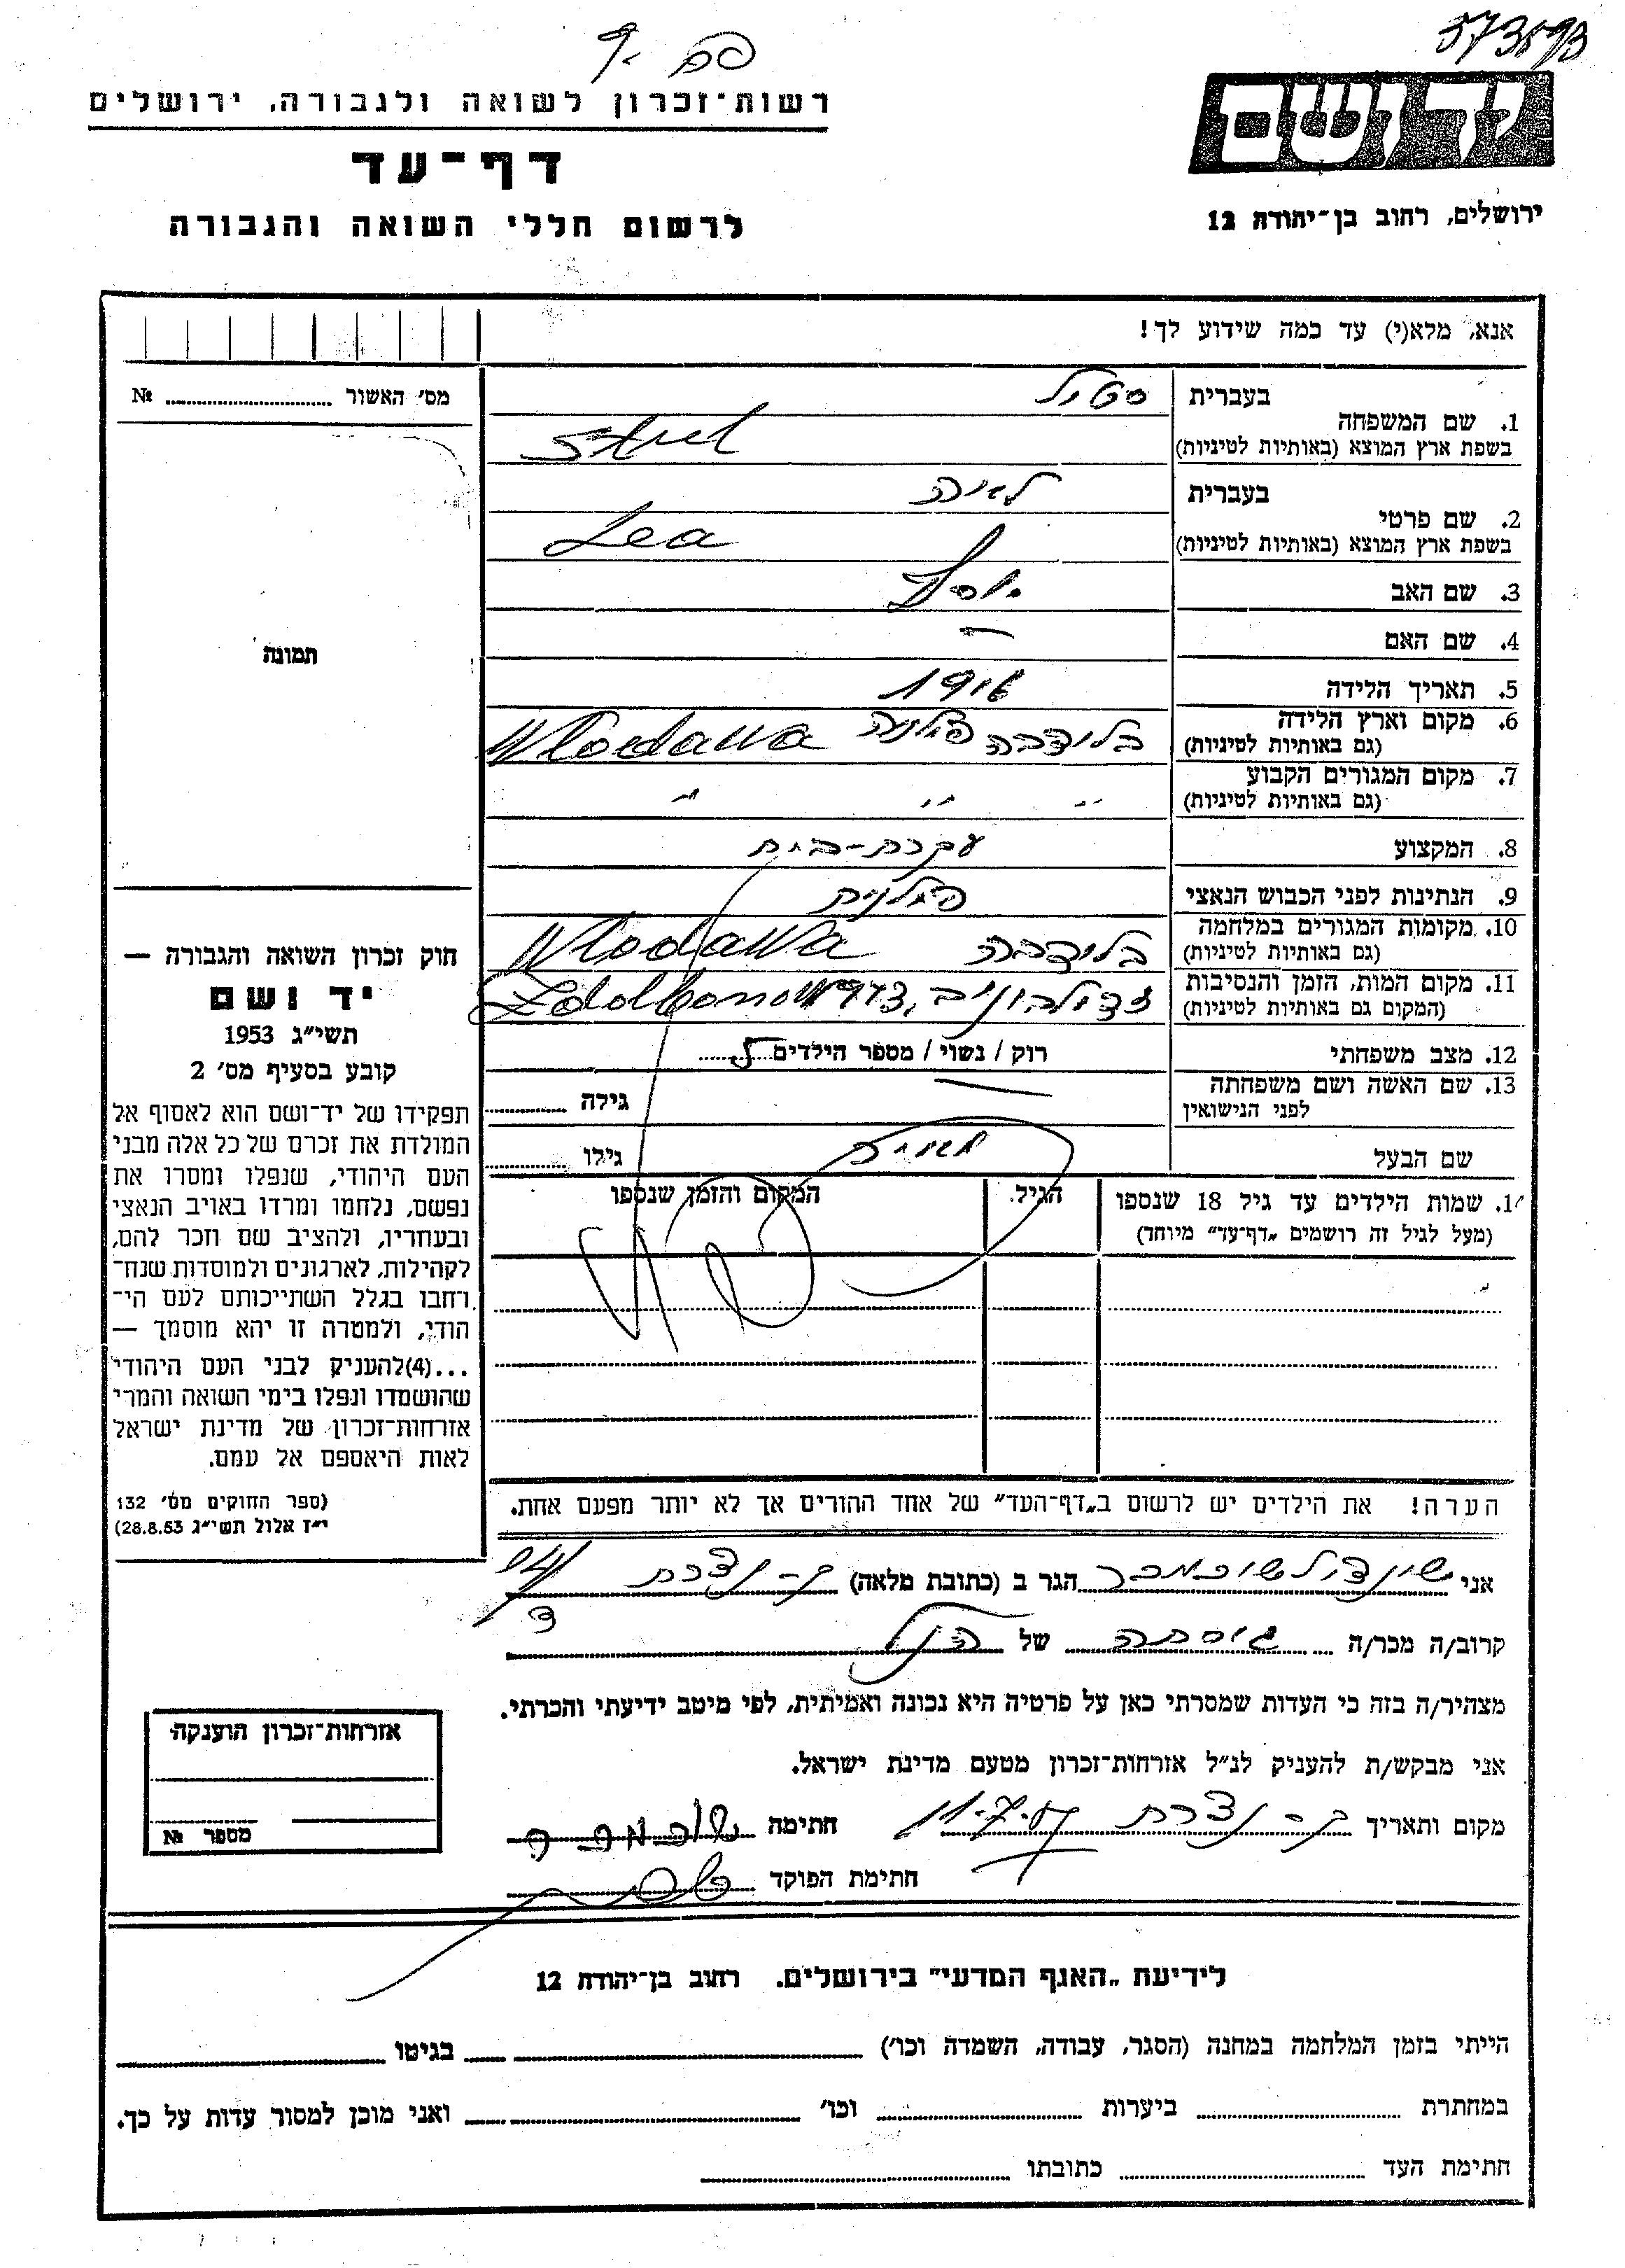 573593
רשות־זכרון לשואה ולגבורה, ירושלים
דף־עד
לרשום חללי השואה והגבורה
יד ושם
ירושלים, רחוב בן־יהודה 12
אנא, מלא(י) עד כמה שידוע לך!
מס׳ האשור № 
תמונה
חוק זכרון השואה והגבורה —
יד ושם
תשי״ג 1953
קובע בסעיף מס׳ 2
תפקידו של יד־ושם הוא לאסוף אל
המולדת את זכרם של כל אלה מבני
העם היהודי, שנפלו ומסרו את
נפשם, נלחמו ומרדו באויב הנאצי
ובעוזריו, ולהציב שם וזכר להם,
לקהילות, לארגונים ולמוסדות שנח־
רחבו בגלל השתייכותם לעם הי־
הודי, ולמטרה זו יהא מוסמך —
...(4)להעניק לבני העם היהודי
שהושמדו ונפלו בימי השואה והמרי
אזרחות־זכרון של מדינת ישראל
לאות היאספם אל עמם.
(ספר החוקים מס׳ 132
י״ז אלול תשי״ג 28.8.53)
1. שם המשפחה בעברית
בשפת ארץ המוצא (באותיות לטיניות)
2. שם פרטי בעברית לאיה
בשפת ארץ המוצא (באותיות לטיניות) Lea
3. שם האב יוסף
4. שם האם —
5. תאריך הלידה
6. מקום וארץ הלידה
(גם באותיות לטיניות) ולודבה פולניה Wlodawa
7. מקום המגורים הקבוע
(גם באותיות לטיניות) " " "
8. המקצוע עקרת-בית
9. הנתינות לפני הכבוש הנאצי פולנית
10. מקומות המגורים במלחמה
(גם באותיות לטיניות) ולודבה Wlodawa
11. מקום המות, הזמן והנסיבות
(המקום גם באותיות לטיניות) זדולבוניב, Zdolbonow
12. מצב משפחתי רוק / נשוי / מספר הילדים
13. שם האשה ושם משפחתה
לפני הנישואין — גילה
שם הבעל גילו
14. שמות הילדים עד גיל 18 שנספו הגיל. המקום והזמן שנספו
(מעל לגיל זה רושמים „דף־עד״ מיוחד)
הערה! את הילדים יש לרשום ב„דף־העד״ של אחד ההורים אך לא יותר מפעם אחת.
אני שיינדל שוכמכר הגר ב (כתובת מלאה) ק-נצרת
קרוב/ה מכר/ה גיסתה של הנ"ל
מצהיר/ה בזה כי העדות שמסרתי כאן על פרטיה היא נכונה ואמיתית, לפי מיטב ידיעתי והכרתי.
אני מבקש/ת להעניק לנ״ל אזרחות־זכרון מטעם מדינת ישראל.
מקום ותאריך ק-נצרת חתימה
חתימת הפוקד
אזרחות־זכרון הוענקה
מספר №
לידיעת „האגף המדעי״ בירושלים. רחוב בן־יהודה 12
הייתי בזמן המלחמה במחנה (הסגר, עבודה, השמדה וכו׳) בגיטו
במחתרת ביערות וכו׳ ואני מוכן למסור עדות על כך.
חתימת העד כתובתו